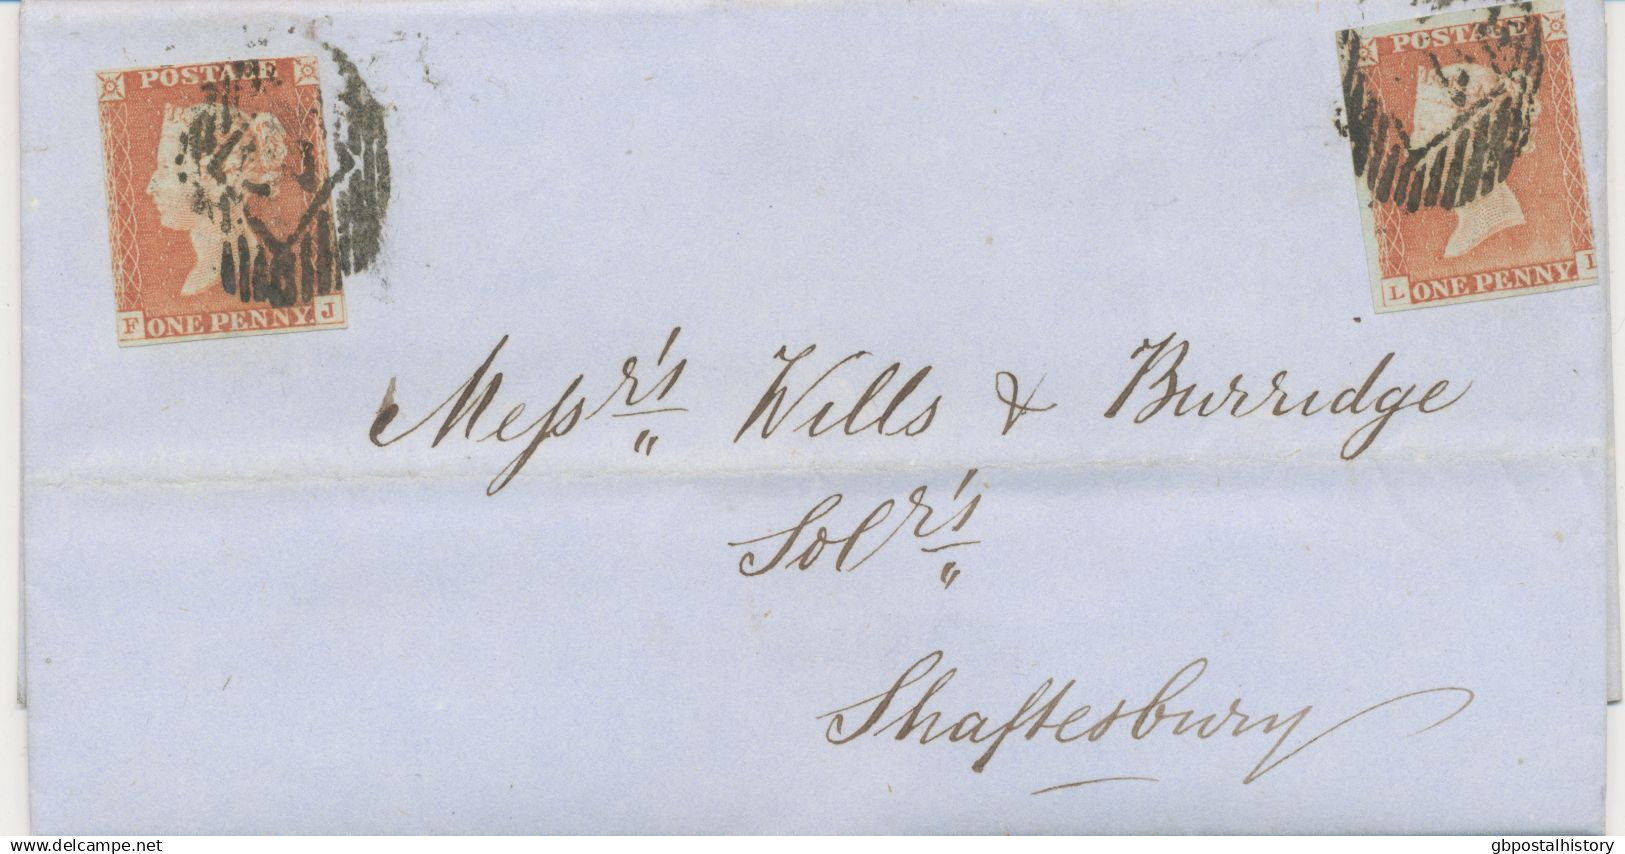 POSTAGE
F ONE PENNY. J
POSTAGE
L ONE PENNY. I
Messrs Wills & Burridge
Solrs
Shaftesbury
delcampe.net
gbpostalhistory